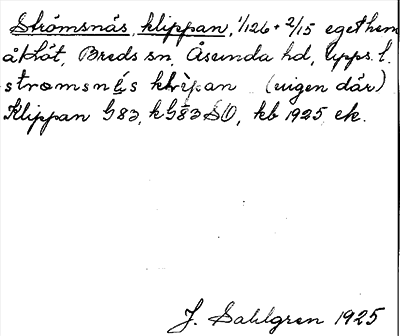 Strömsnäs, klippan, 1/126 + 2/15 eget hem
åkt o t, Breds sn, Åsunda hd, Upps. l.
strǫmsnę́s khl̀ipan (ingen där)
Klippan G83, kG83 SO, kb 1925 ek.
J. Sahlgren 1925